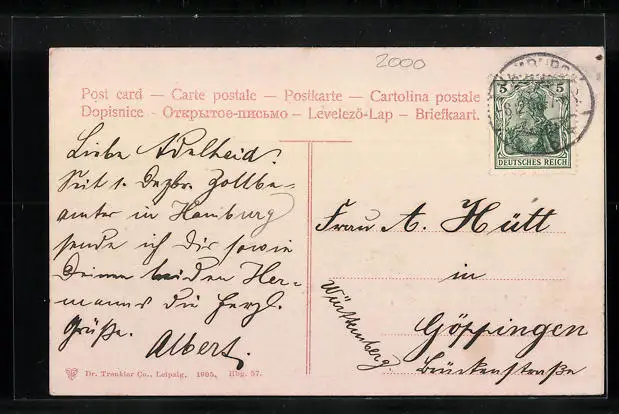 2000
Post card — Carte postale — Postkarte — Cartolina postale
Dopisnice - Открытое-письмо — Levelező-Lap — Briefkaart.
5 5
DEUTSCHES REICH
Liebe Adelheid!
Seit 1. Dezbr. Zollbe-
amter in Hamburg
sende ich Dir sowie
Deinen beiden Her-
manns die herzl.
Grüße.
Albert.
Frau A. Hütt
in
Göppingen
Württemberg.
Brückenstraße
Dr. Trenkler Co., Leipzig. 1905. Hbg. 57.